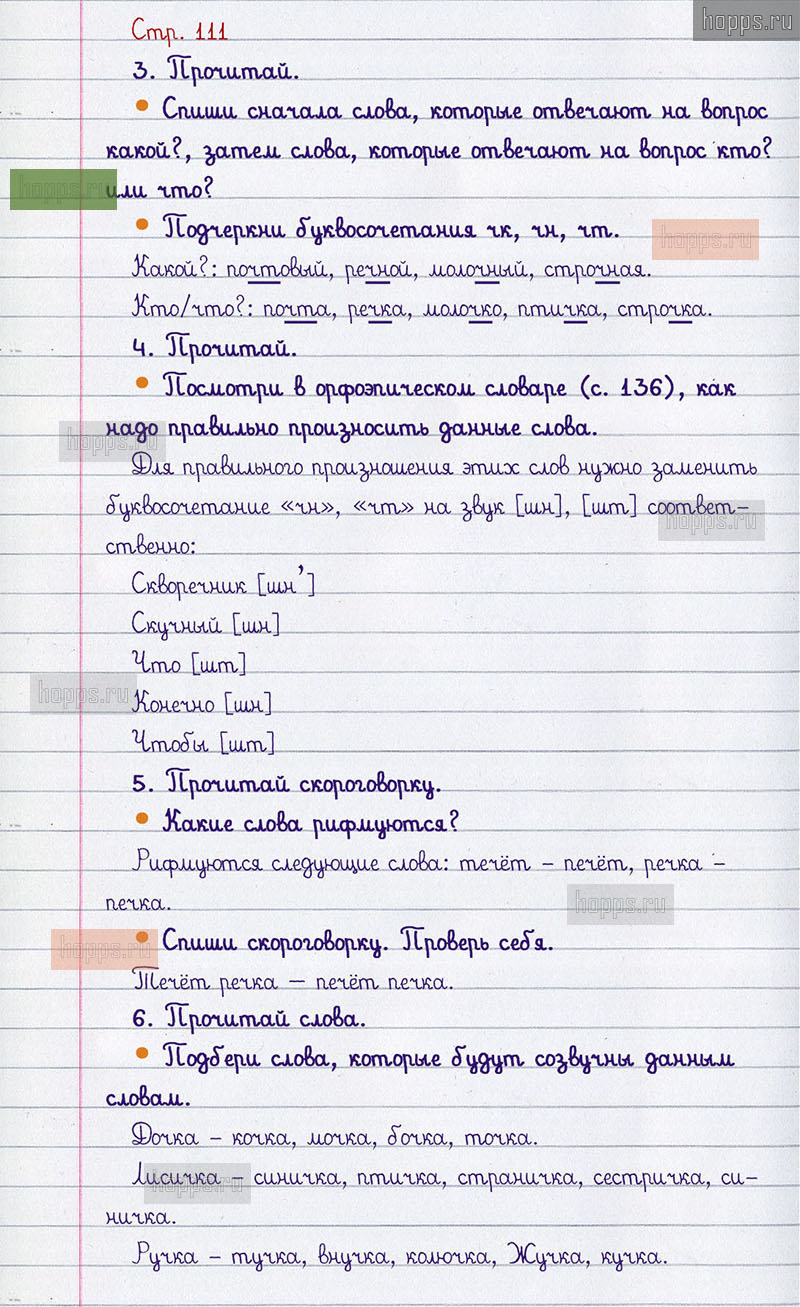 hopps.ru
Стр. 111
3. Прочитай.
• Спиши сначала слова, которые отвечают на вопрос
какой?, затем слова, которые отвечают на вопрос кто?
hopps.ru
или что?
• Подчеркни буквосочетания чк, чн, чт.
hopps.ru
Какой?: почтовый, речной, молочный, строчная.
Кто/что?: почта, речка, молочко, птичка, строчка.
4. Прочитай.
• Посмотри в орфоэпическом словаре (с. 136), как
надо правильно произносить данные слова.
hopps.ru
Для правильного произношения этих слов нужно заменить
буквосочетание «чн», «чт» на звук [шн], [шт] соответ-
hopps.ru
ственно:
Скворечник [шн’]
Скучный [шн]
Что [шт]
hopps.ru
Конечно [шн]
Чтобы [шт]
5. Прочитай скороговорку.
• Какие слова рифмуются?
Рифмуются следующие слова: течёт – печёт, речка –
печка.
hopps.ru
• Спиши скороговорку. Проверь себя.
hopps.ru
Течёт речка – печёт печка.
6. Прочитай слова.
• Подбери слова, которые будут созвучны данным
словам.
Дочка – кочка, мочка, бочка, точка.
Лисичка – синичка, птичка, страничка, сестричка, си-
hopps.ru
ничка.
Ручка – тучка, внучка, колючка, Жучка, кучка.